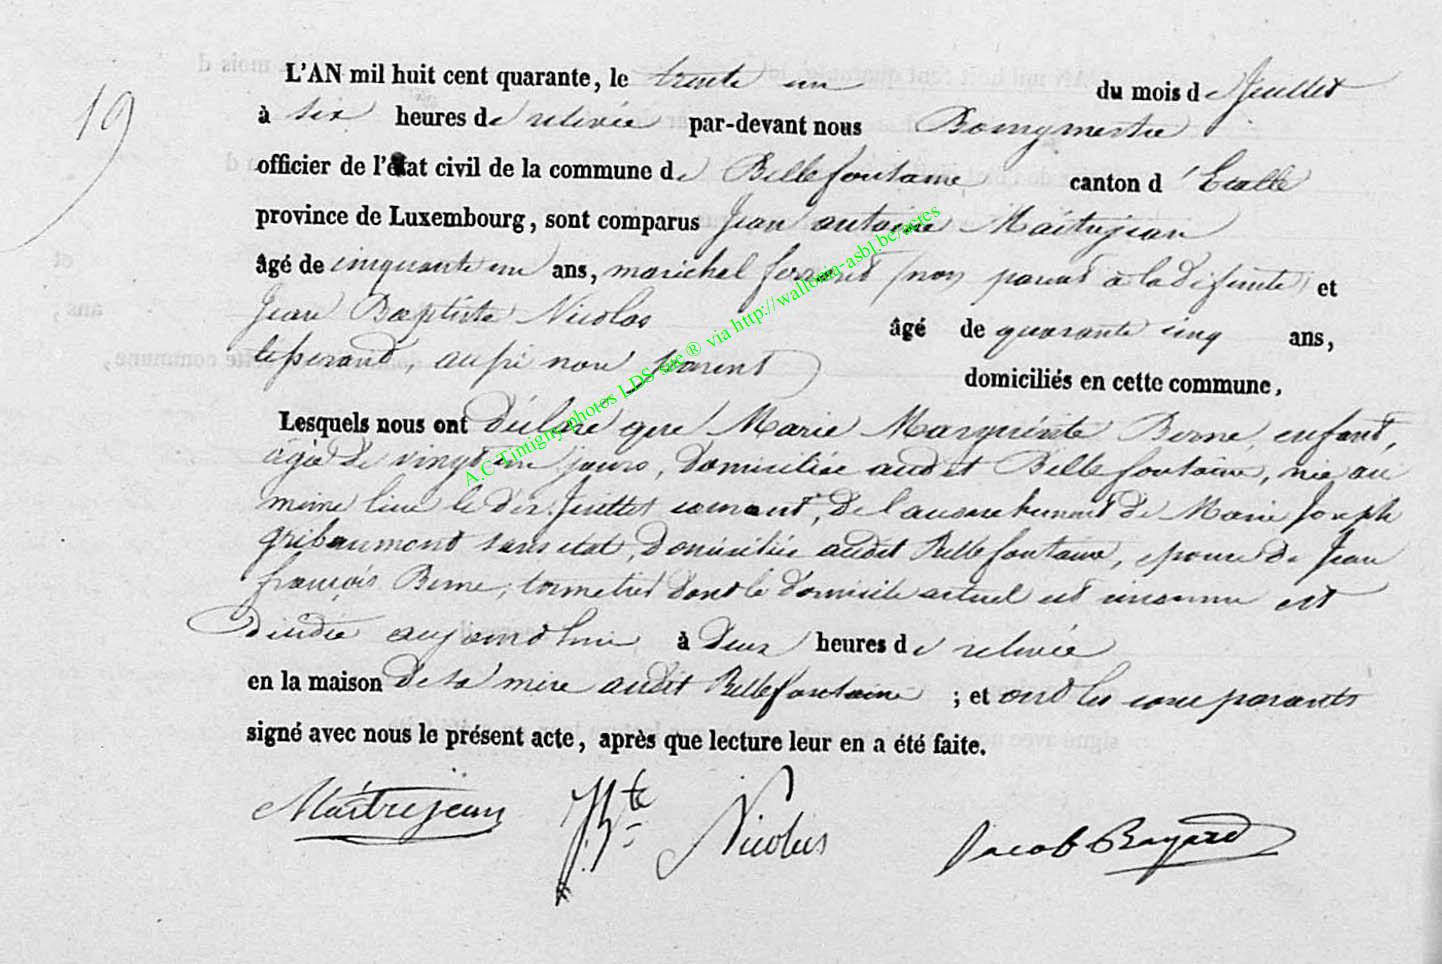 19
L'AN mil huit cent quarante, le trente un du mois de Juillet
à six heures de relevée par-devant nous Bourgmestre
officier de l'état civil de la commune de Bellefontaine canton d'Etalle
province de Luxembourg, sont comparus Jean antoine Maitrejean
âgé de cinquante un ans, marichal ferrant (non parent à la défunte) et
Jean Baptiste Nicolas âgé de quarante cinq ans,
tisserand, aussi non parent) domiciliés en cette commune,
Lesquels nous ont déclaré que Marie Marguerite Berne, enfant,
agée de vingt un jours, domiciliée audit Bellefontaine, née au
meme lieu le dix Juillet courant, de l'accouchement de Marie Joseph
gribaumont sans état, domiciliée audit Bellefontaine, epouse de Jean
françois Berne, dont le domicile actuel est inconnu est
décédée aujourd'hui à deux heures de relevée
en la maison de sa mère audit Bellefontaine ; et ont les comparants
signé avec nous le présent acte, après que lecture leur en a été faite.
Maitrejean J. Bte Nicolas Jacob Bayard
A.C Tintigny photos LDS etc ® via http://wallonia-asbl.be/actes